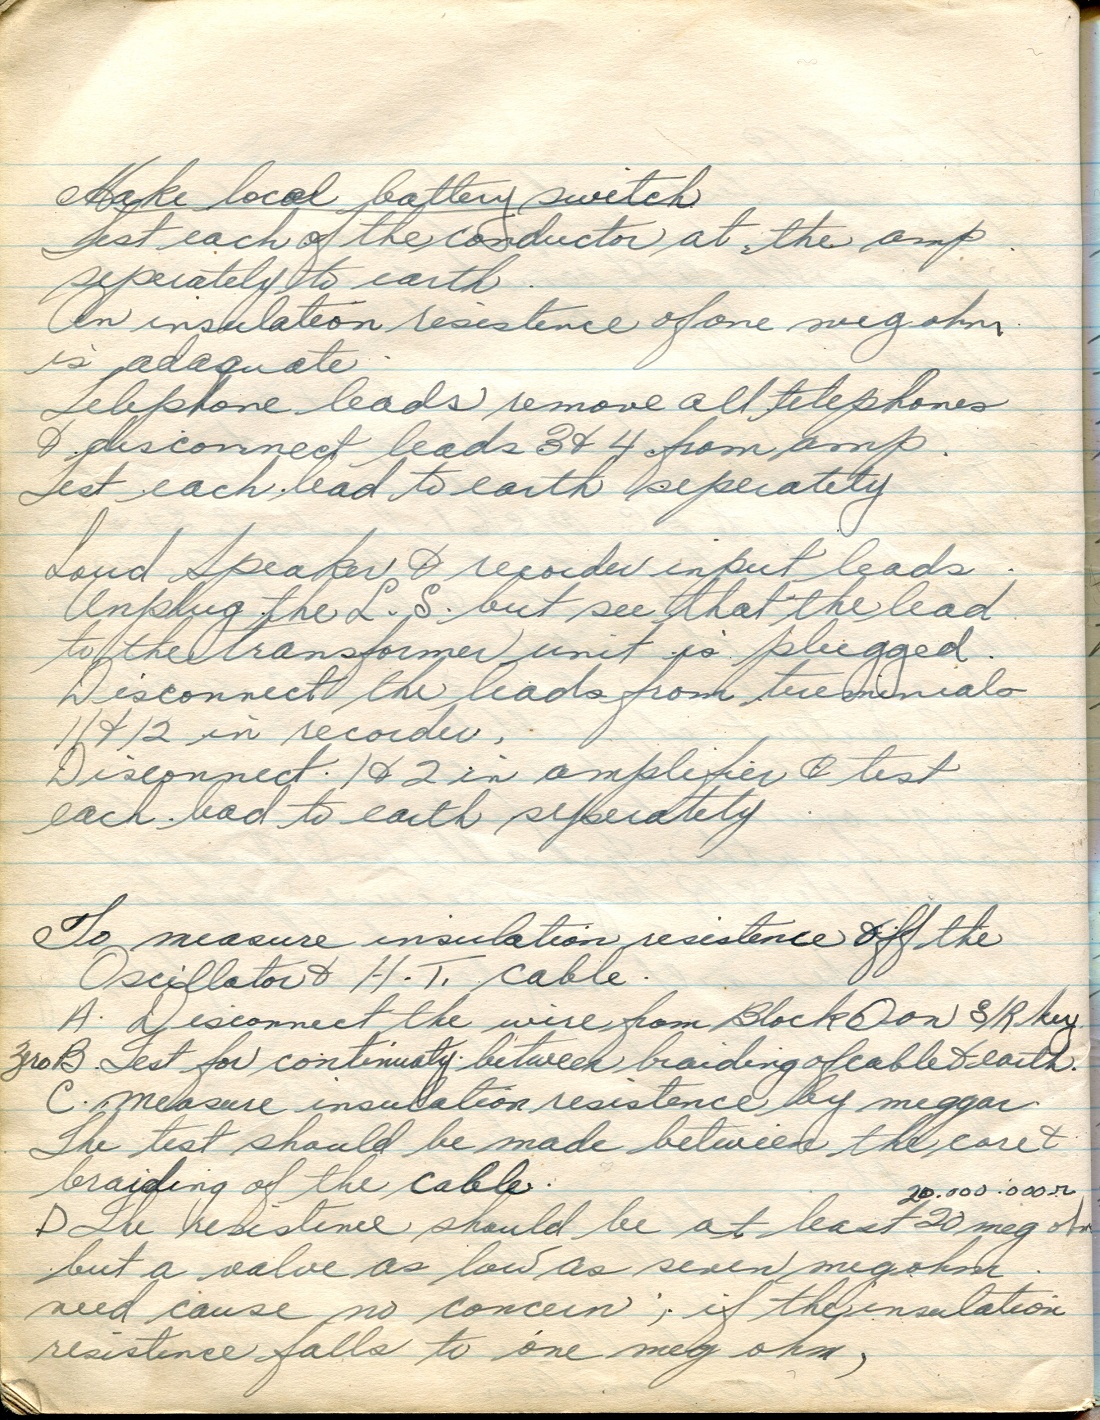 Make local battery switch
Test each of the conductor at the amp.
seperately to earth.
An insulation resistence of one meg ohm
is adaquate.
Telephone leads remove all telephones
& disconnect leads 3 & 4 from amp.
Test each lead to earth seperately
Loud Speaker & recorder input leads.
Unplug the L.S. but see that the lead
to the transformer unit is plugged.
Disconnect the leads from terminals
11 & 12 in recorder,
Disconnect 1 & 2 in amplifier & test
each lead to earth seperately
To measure insulation resistence off the
Oscillator & H.T. cable.
A. Disconnect the wire from Block O on S/R key
Zero B. Test for continuaty between braiding of cable & earth.
C. measure insulation resistence by meggar
The test should be made between the core &
braiding of the cable.
20.000.000 Ω
D The resistence should be at least 20 meg ohm
but a value as low as seven megohm.
need cause no concern; if the insulation
resistence falls to one meg ohm,